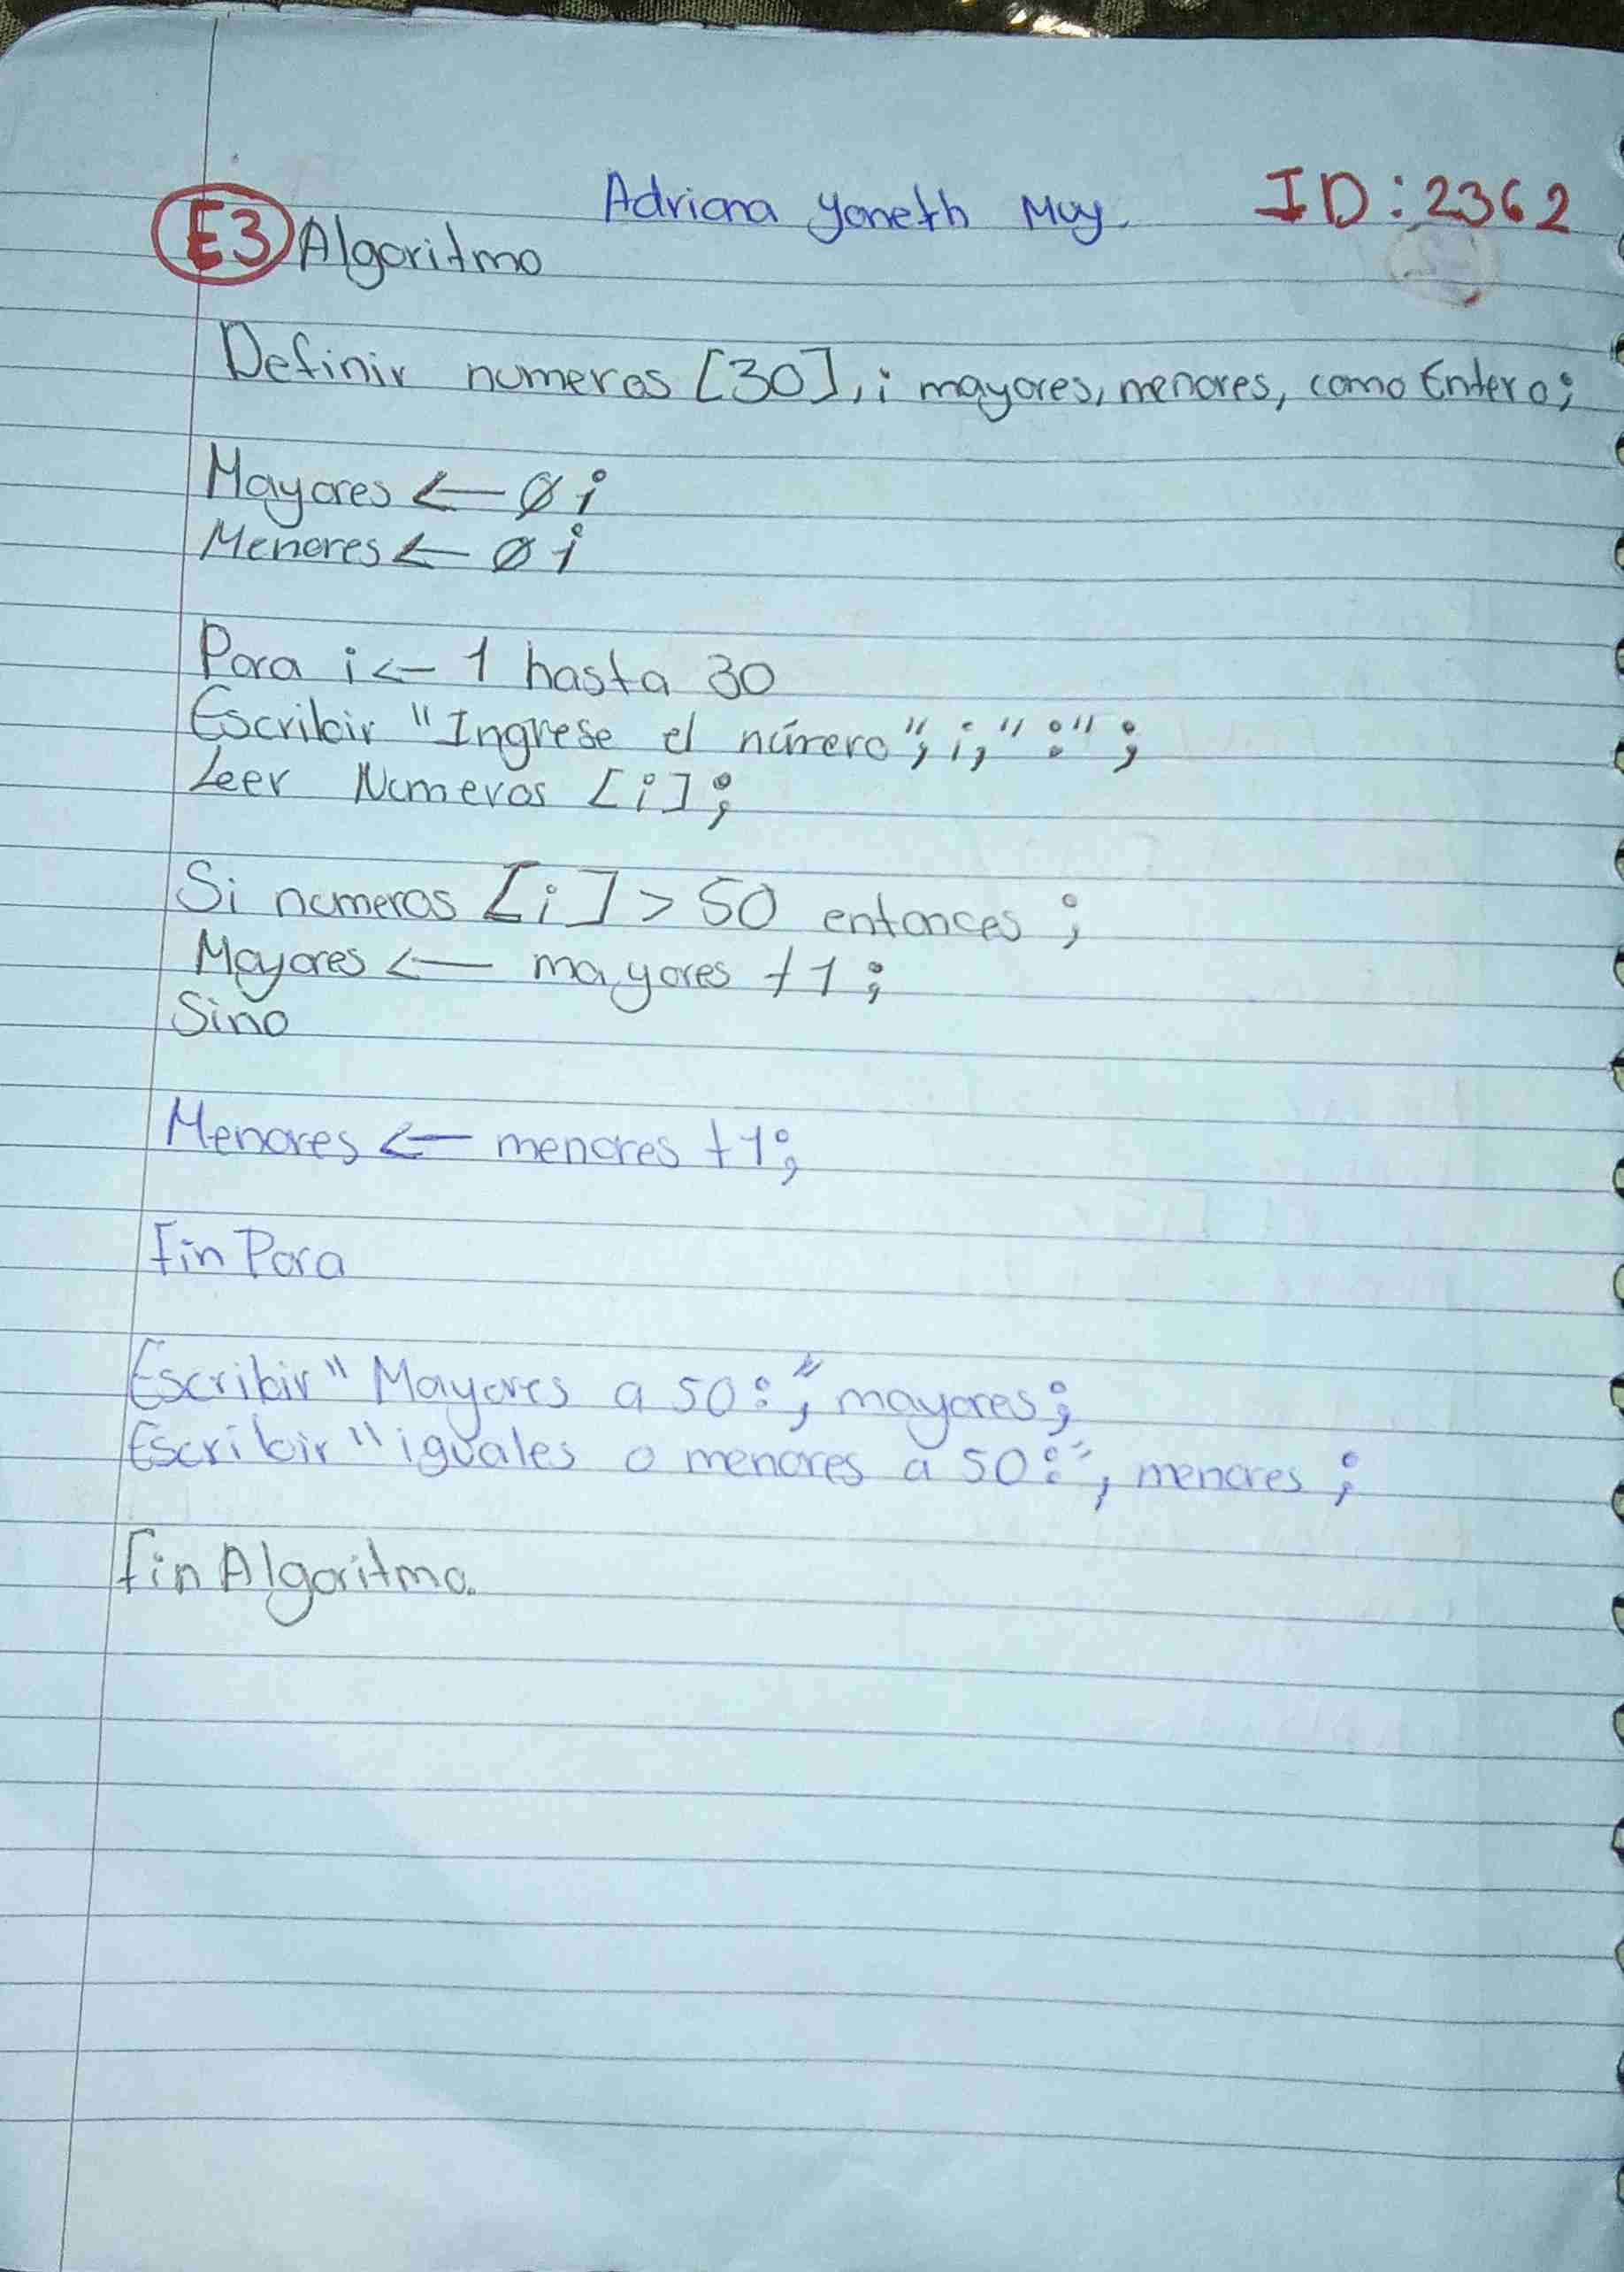 Adriana Yaneth Muy. ID:2362
E3 Algoritmo
Definir numeros [30], i mayores, menores, como Entero;
Mayores ← 0;
Menores ← 0;
Para i ← 1 hasta 30
Escribir "Ingrese el número", i, ":";
Leer Numeros [i];
Si numeros [i] > 50 entonces ;
Mayores ← mayores +1;
Sino
Menores ← menores +1;
Fin Para
Escribir "Mayores a 50:", mayores;
Escribir "iguales o menores a 50:", menores ;
fin Algoritmo.